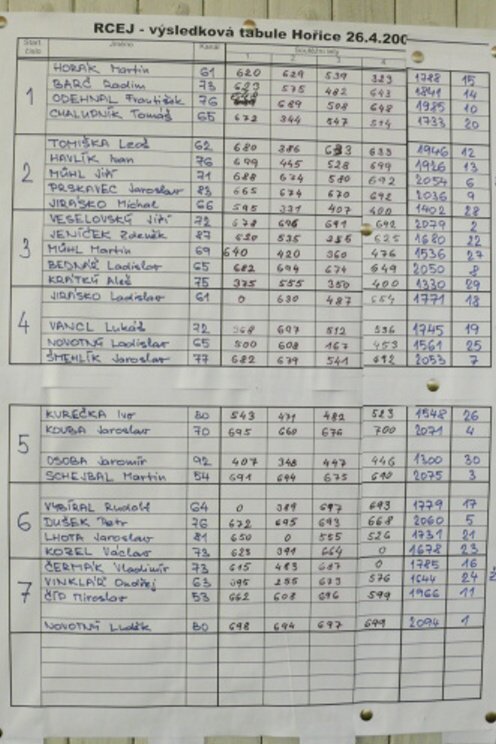 RCEJ - výsledková tabule Hořice 26.4.200
Start. číslo Jméno Kanál Soutěžní lety
1 2 3 4
1
HORÁK Martin 61 620 629 539 323 1788 15
BARČ Radim 73 623 575 482 643 1841 14
ODEHNAL František 76 689 508 648 1985 10
CHALUPNÍK Tomáš 65 672 344 547 514 1733 20
2
TOMIŠKA Leoš 62 680 386 633 633 1946 12
HAVLÍK Ivan 76 699 445 528 699 1926 13
MÜHL Jiří 71 688 674 580 692 2054 6
PRSKAVEC Jaroslav 83 665 674 670 692 2036 9
JIRÁSKO Michal 66 595 331 407 400 1402 28
3
VESELOVSKÝ Jiří 72 678 696 691 692 2079 2
JENÍČEK Zdeněk 87 520 535 255 625 1680 22
MÜHL Martin 69 640 420 360 476 1536 27
BEDNÁŘ Ladislav 65 682 694 674 649 2050 8
KRÁTKÝ Aleš 75 375 555 350 400 1330 29
4
JIRÁSKO Ladislav 61 0 630 487 654 1771 18
VANCL Lukáš 72 568 697 512 536 1745 19
NOVOTNÝ Ladislav 65 500 608 167 453 1561 25
ŠMEHLÍK Jaroslav 77 682 679 541 692 2053 7
5
KUREČKA Ivo 80 543 471 482 523 1548 26
KOUBA Jaroslav 70 695 660 676 700 2071 4
OSOBA Jaromír 92 407 348 447 446 1300 30
SCHEJBAL Martin 54 691 694 675 690 2075 3
6
VYBÍRAL Rudolf 64 0 389 697 693 1779 17
DUŠEK Petr 76 672 695 693 668 2060 5
LHOTA Jaroslav 81 650 0 555 526 1731 21
KOZEL Václav 73 623 391 664 0 1678 23
7
ČERMÁK Vladimír 73 615 483 687 0 1785 16
VINKLÁŘ Ondřej 63 395 255 673 576 1644 24
ČÍP Miroslav 53 662 608 696 599 1966 11
NOVOTNÝ Luděk 80 698 694 697 699 2094 1